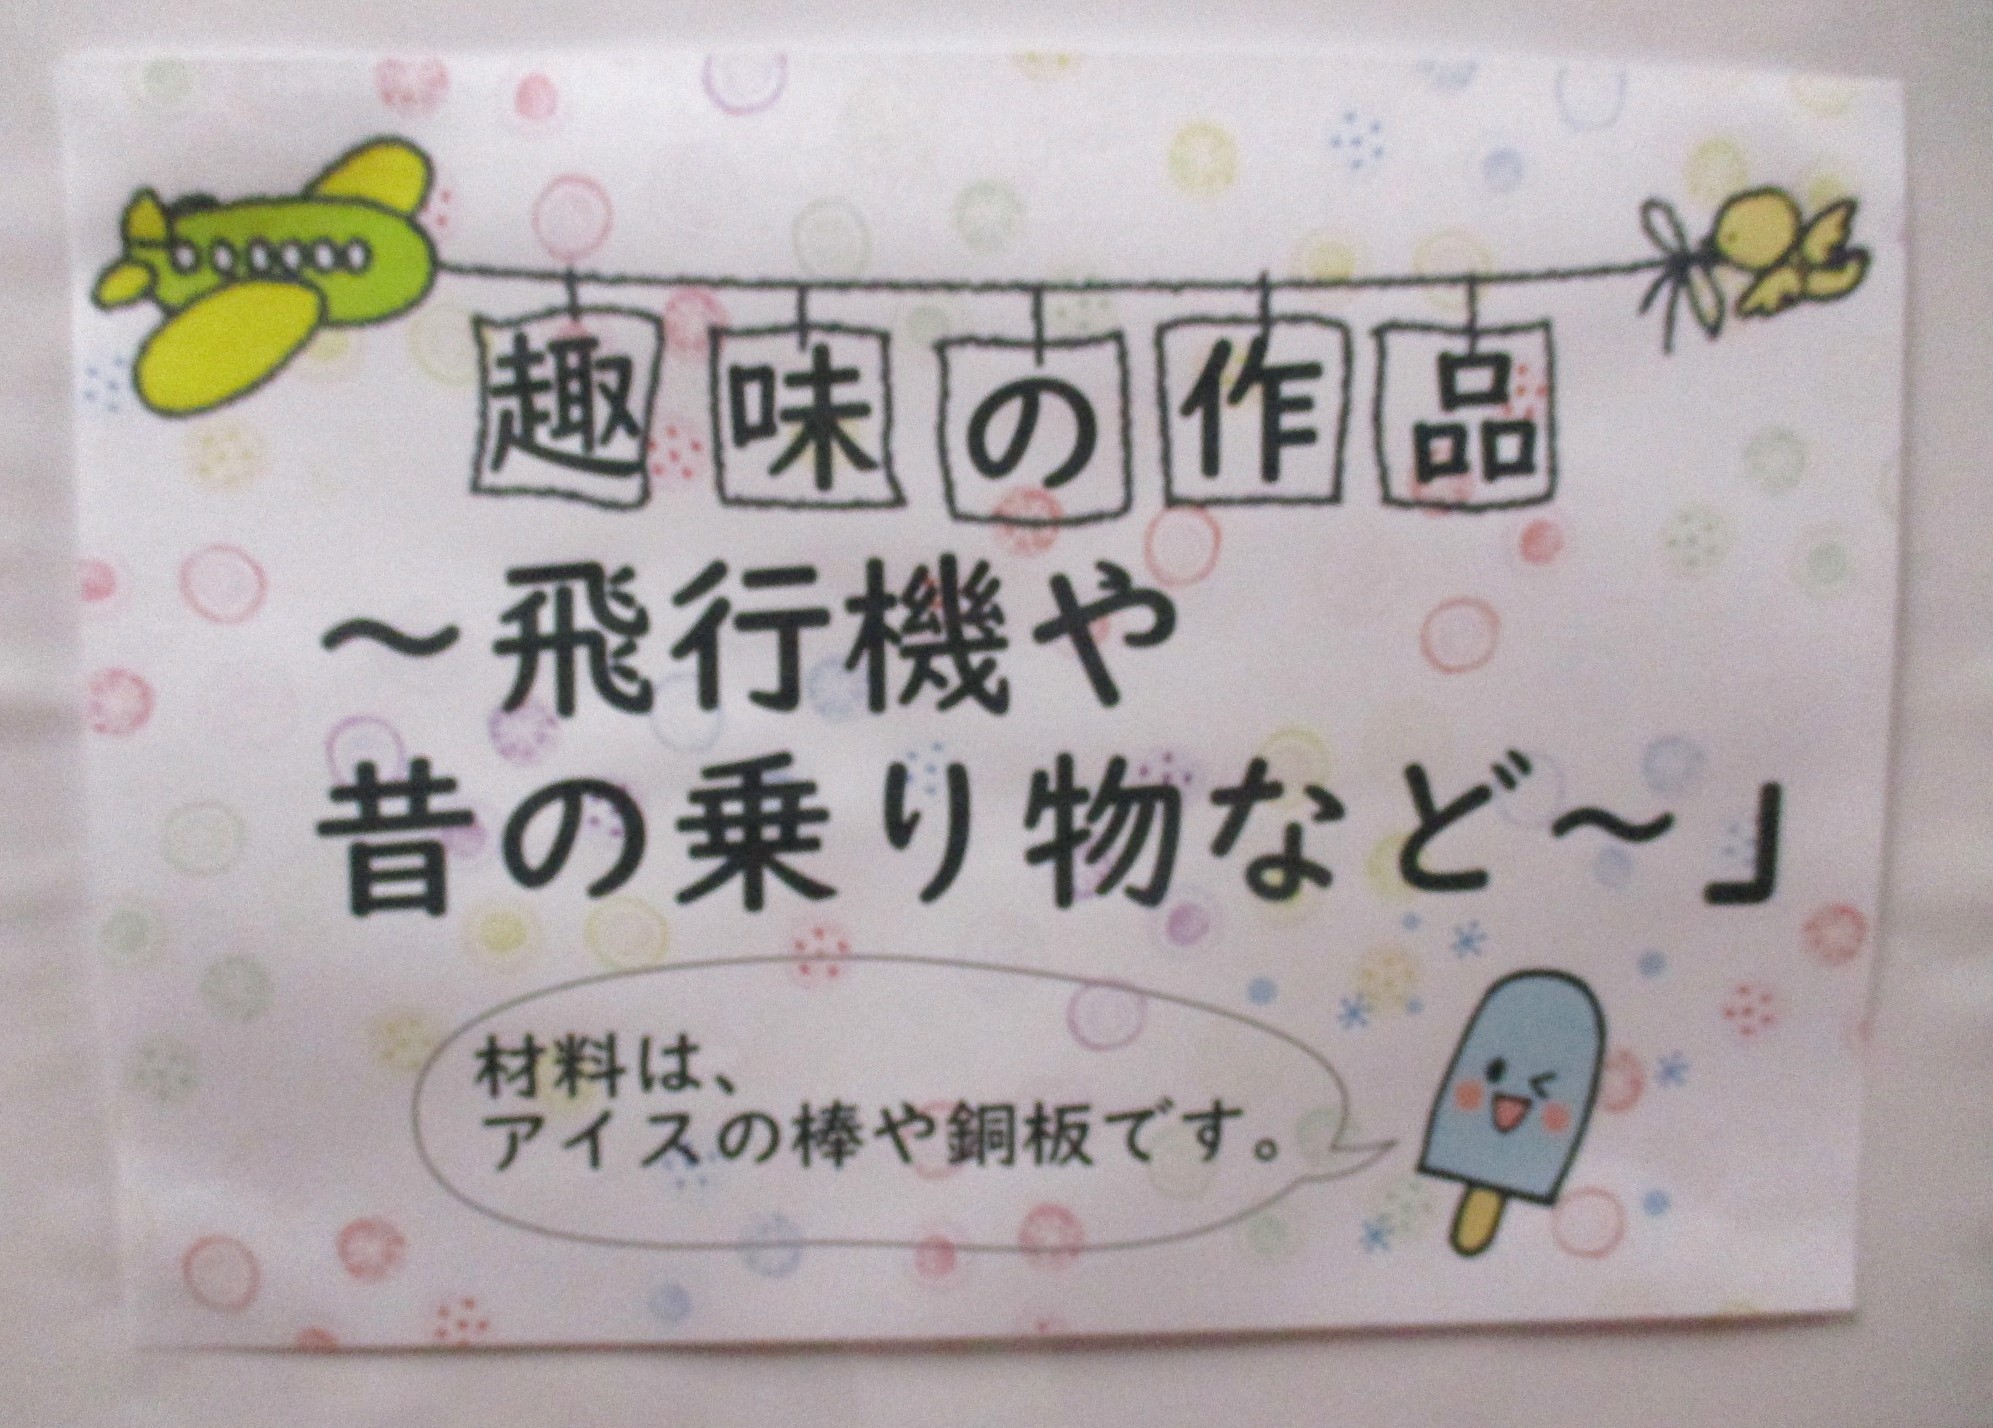 趣味の作品
～飛行機や
昔の乗り物など～」
材料は、
アイスの棒や銅板です。